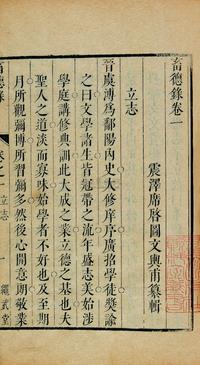 畜德錄卷一
震澤席啓圖文輿甫纂輯
立志
晉虞溥爲鄱陽内史大修庠序廣招學徒獎諭
之曰文學諸生皆冠帶之流年盛志美始涉
學庭講修典訓此大成之業立德之基也夫
聖人之道淡而寡味故始學者不好也及至期
月所觀彌博所習彌多然後心開意朗敬業
畜德錄
卷之一
立志
一
繩武堂